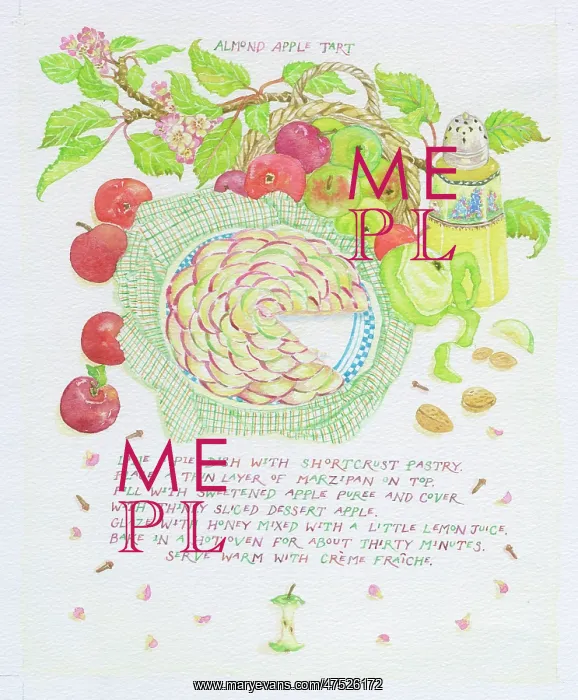 ALMOND APPLE TART
ME
PL
ME
PL
PIE DISH WITH SHORTCRUST PASTRY.
A THIN LAYER OF MARZIPAN ON TOP.
FILL WITH SWEETENED APPLE PUREE AND COVER
WITH THINLY SLICED DESSERT APPLE.
GLAZE WITH HONEY MIXED WITH A LITTLE LEMON JUICE.
BAKE IN A HOT OVEN FOR ABOUT THIRTY MINUTES.
SERVE WARM WITH CRÈME FRAÎCHE.
www.maryevans.com/47526172